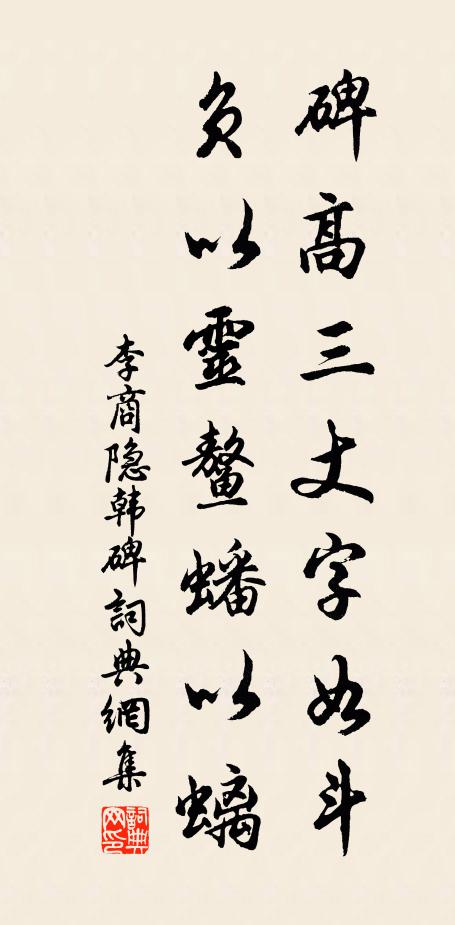 碑高三丈字如斗
负以靈鳌蟠以螭
李商隐韩碑詞典網集
詞典网印